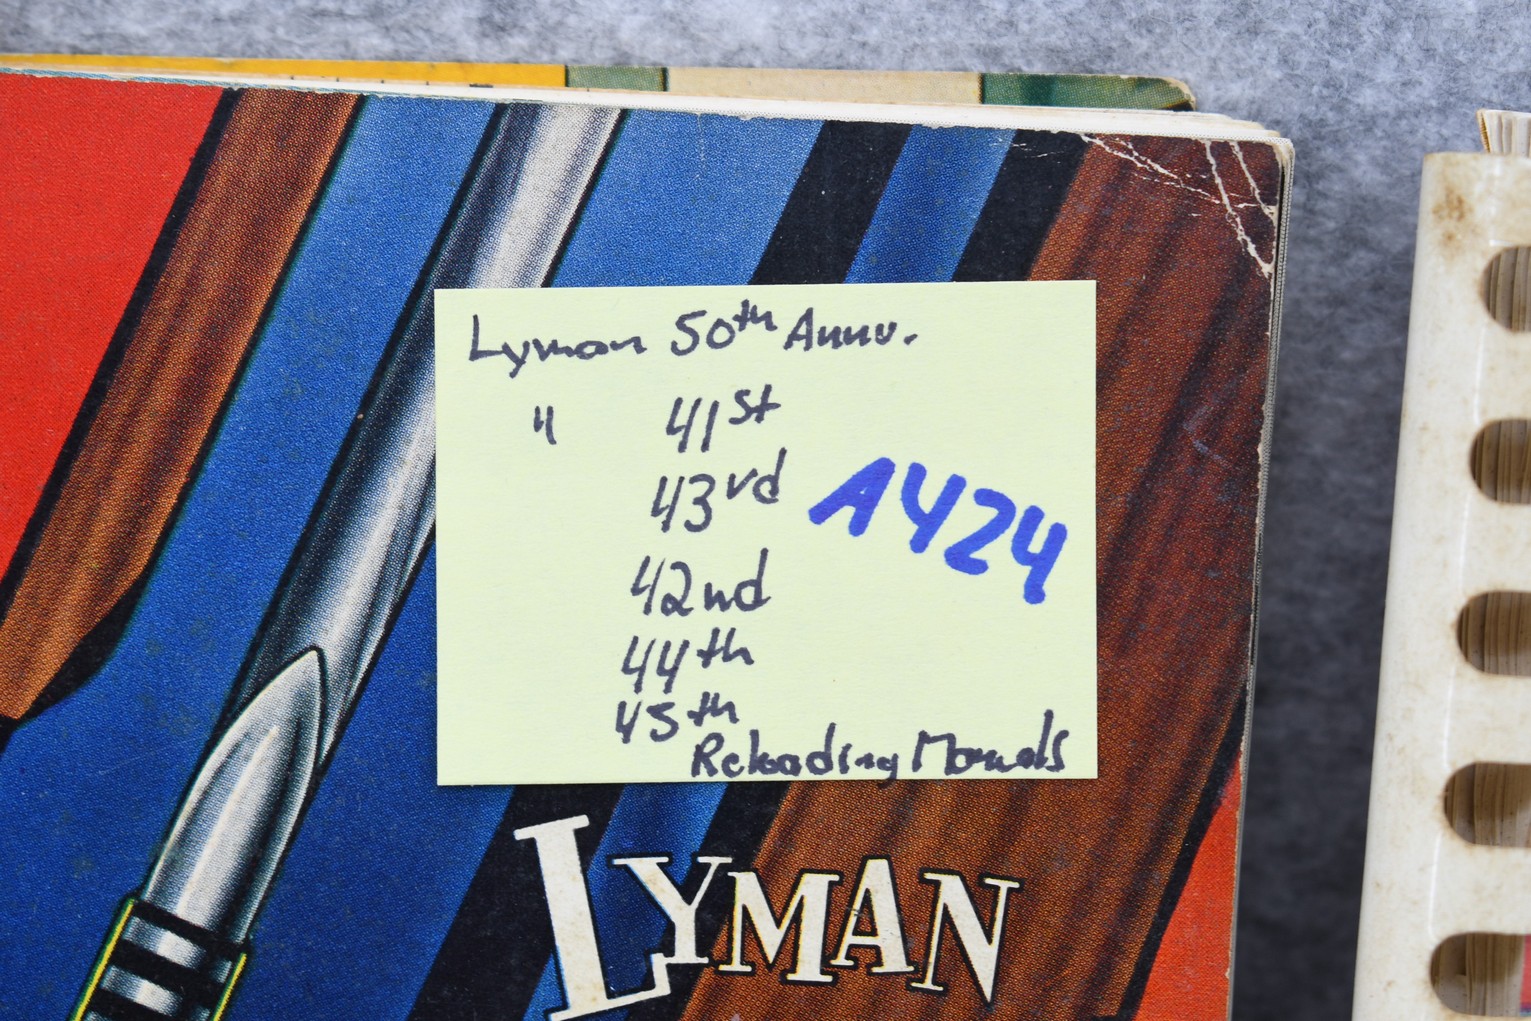 Lyman 50th Annv.
" 41st
43rd
A424
42nd
44th
45th
Reloading Manuals
LYMAN